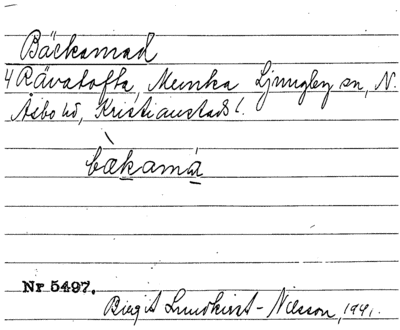 Bäckamad
4 Rävatofta, Munka Ljungby sn, N.
Åsbo hd, Kristianstads l.
bækamá
Nr 5497.
Birgit Lundkvist-Nilsson, 1941.